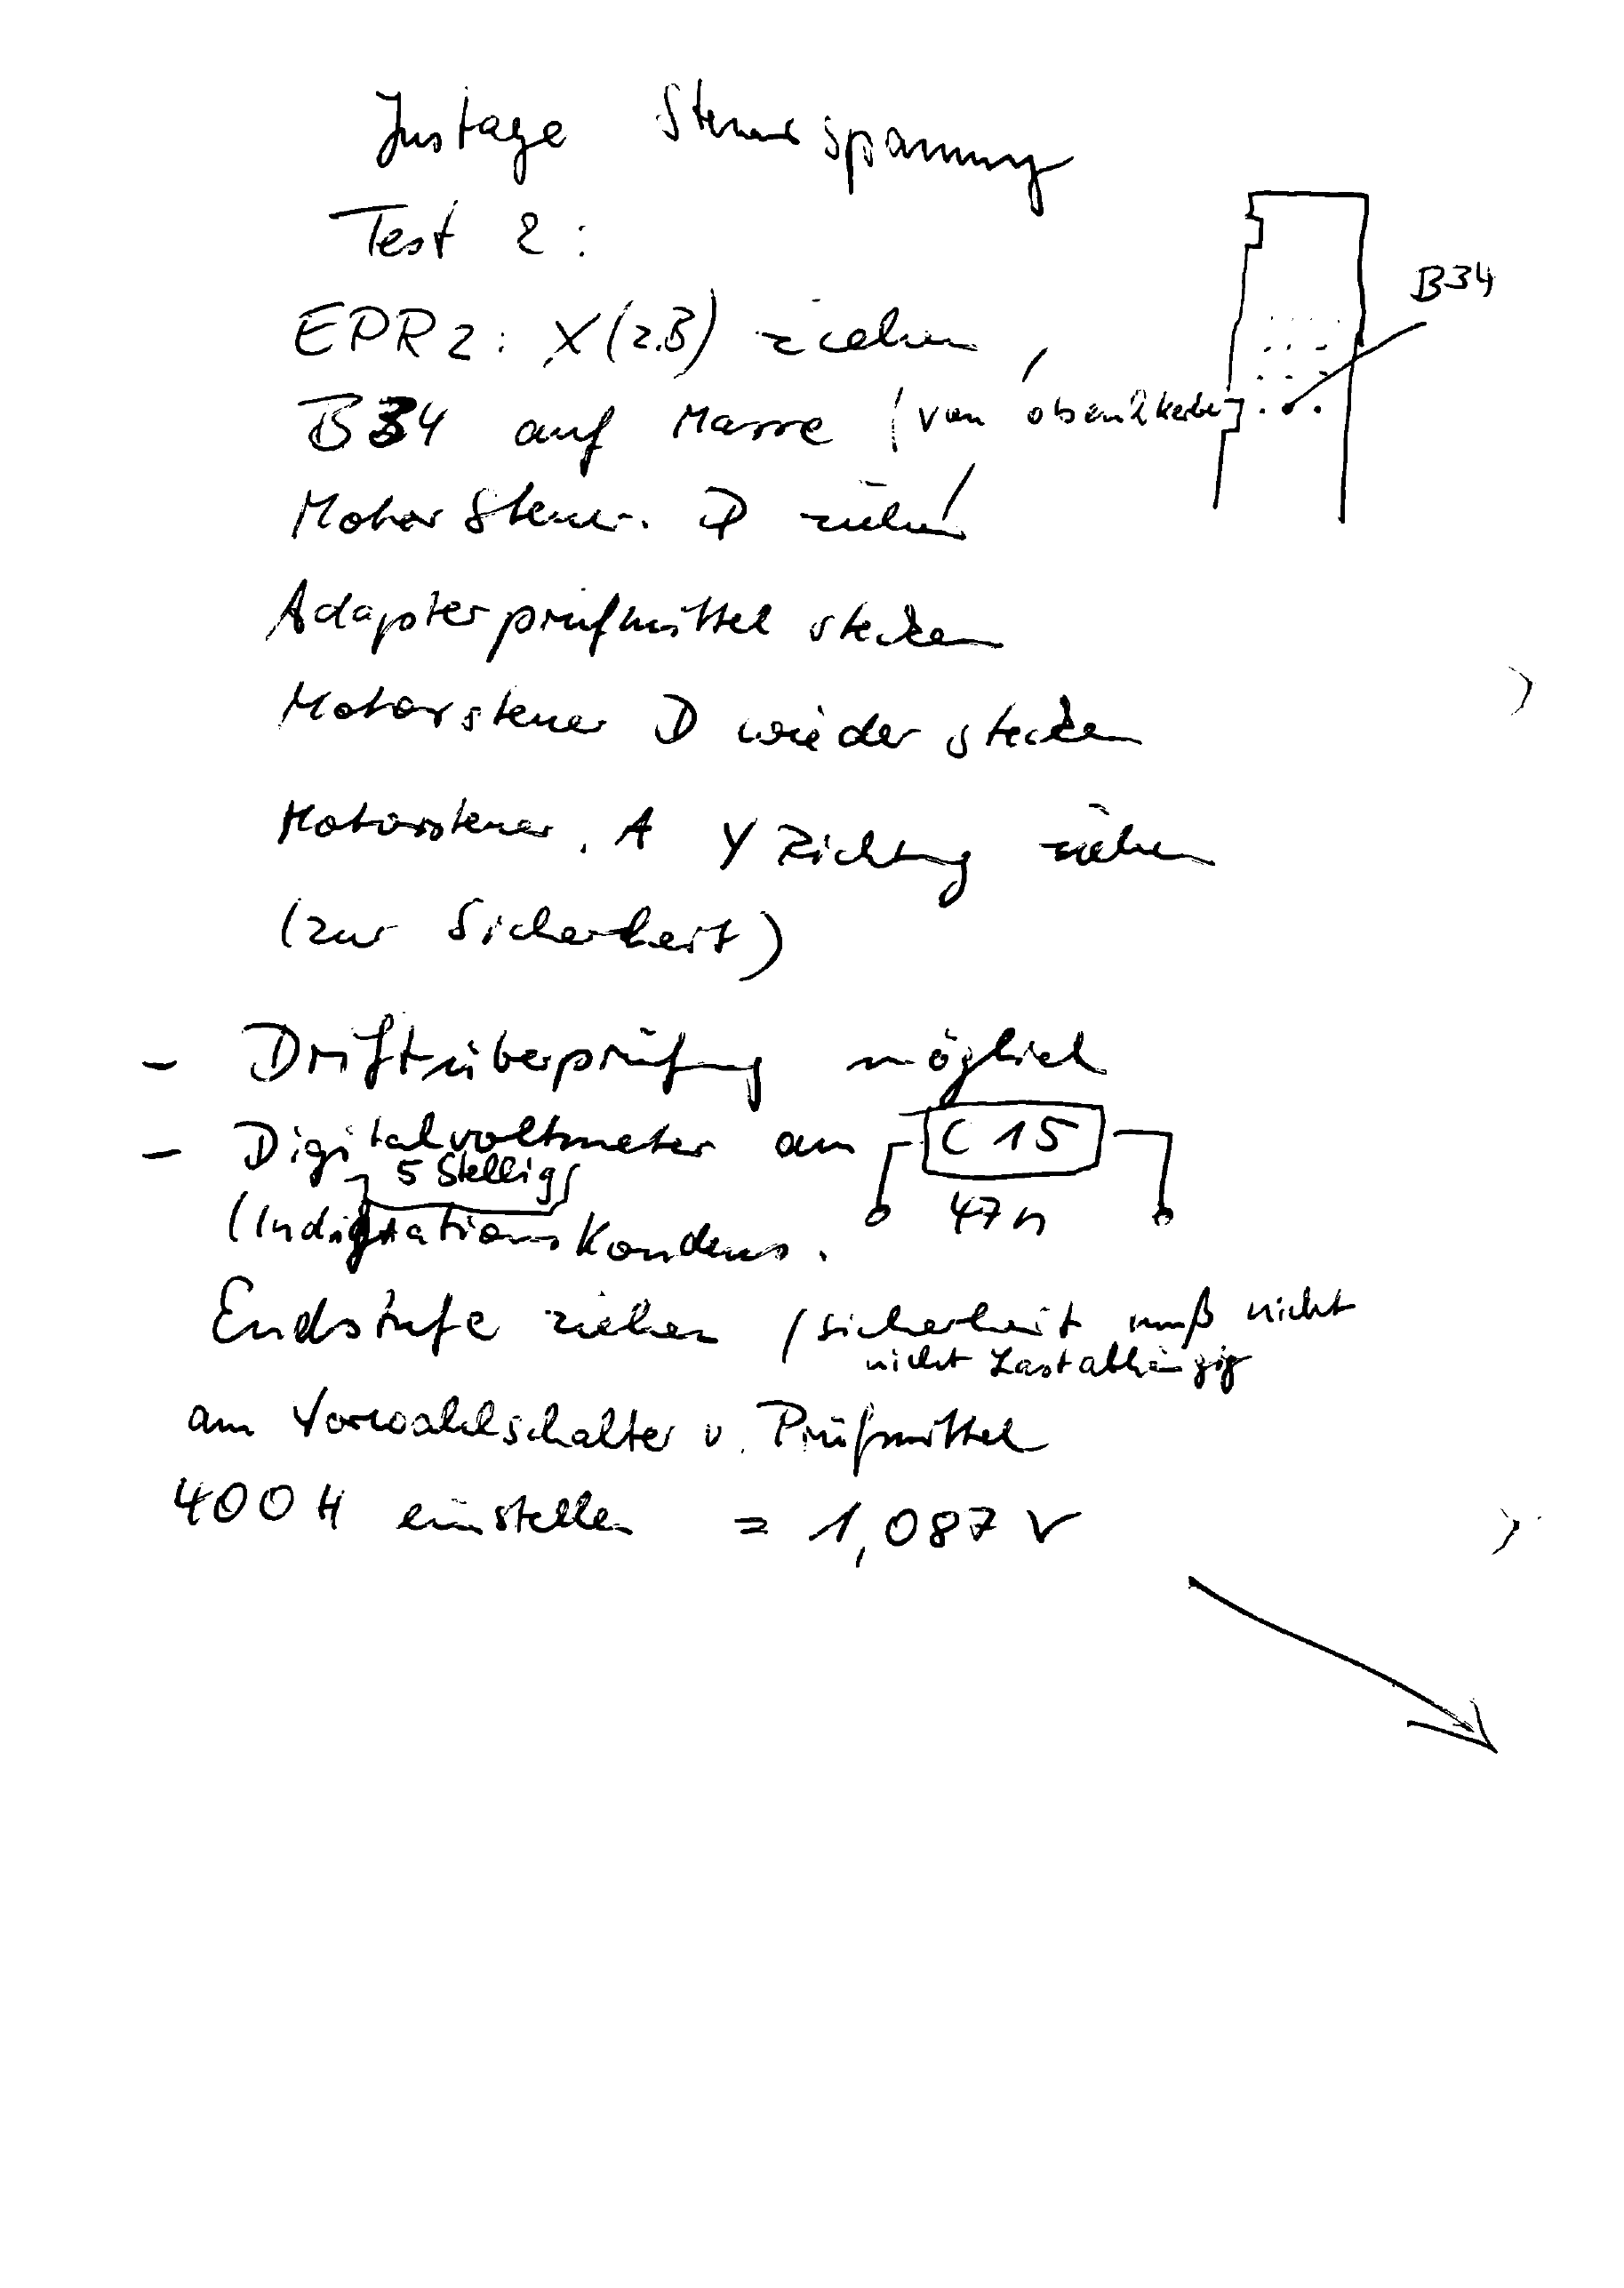 Justage Steuerspannung
Test 2:
EPR2: X (z.B) ziehen,
B34
B34 auf Masse (von oben 2 Kerbe
Motor Steuer. D ziehen!
Adapterprüfmittel stecken
Motorsteuer D wieder stecken
Motorsteuer. A Y Richtung ziehen
(zur Sicherheit)
- Driftüberprüfung möglich
- Digitalvoltmeter am C 15
5 Stellig
47n
Kondens.
Endstufe ziehen (sicherheit muß nicht
nicht Lastabhängig
am Vorwahlschalter v. Prüfmittel
400 H einstellen = 1,087 V